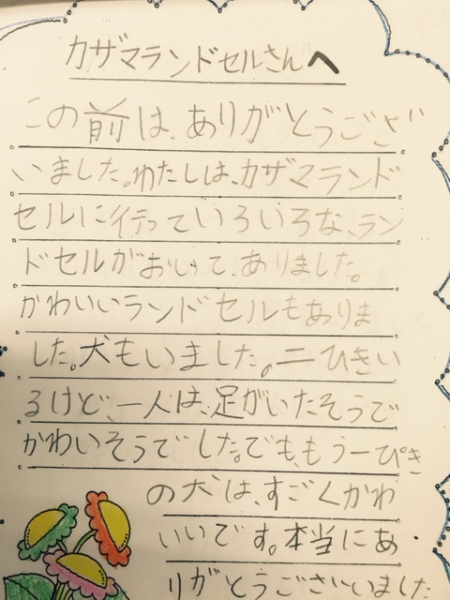 カザマランドセルさんへ
この前は、ありがとうござ
いました。わたしは、カザマランド
セルに行っていろいろな、ラン
ドセルがおいって、ありました。
かわいいランドセルもありま
した。犬もいました。二ひきい
るけど、一人は、足がいたそうで
かわいそうでした。でも、もう一ぴき
の犬は、すごくかわ
いいです。本当にあ
りがとうございました